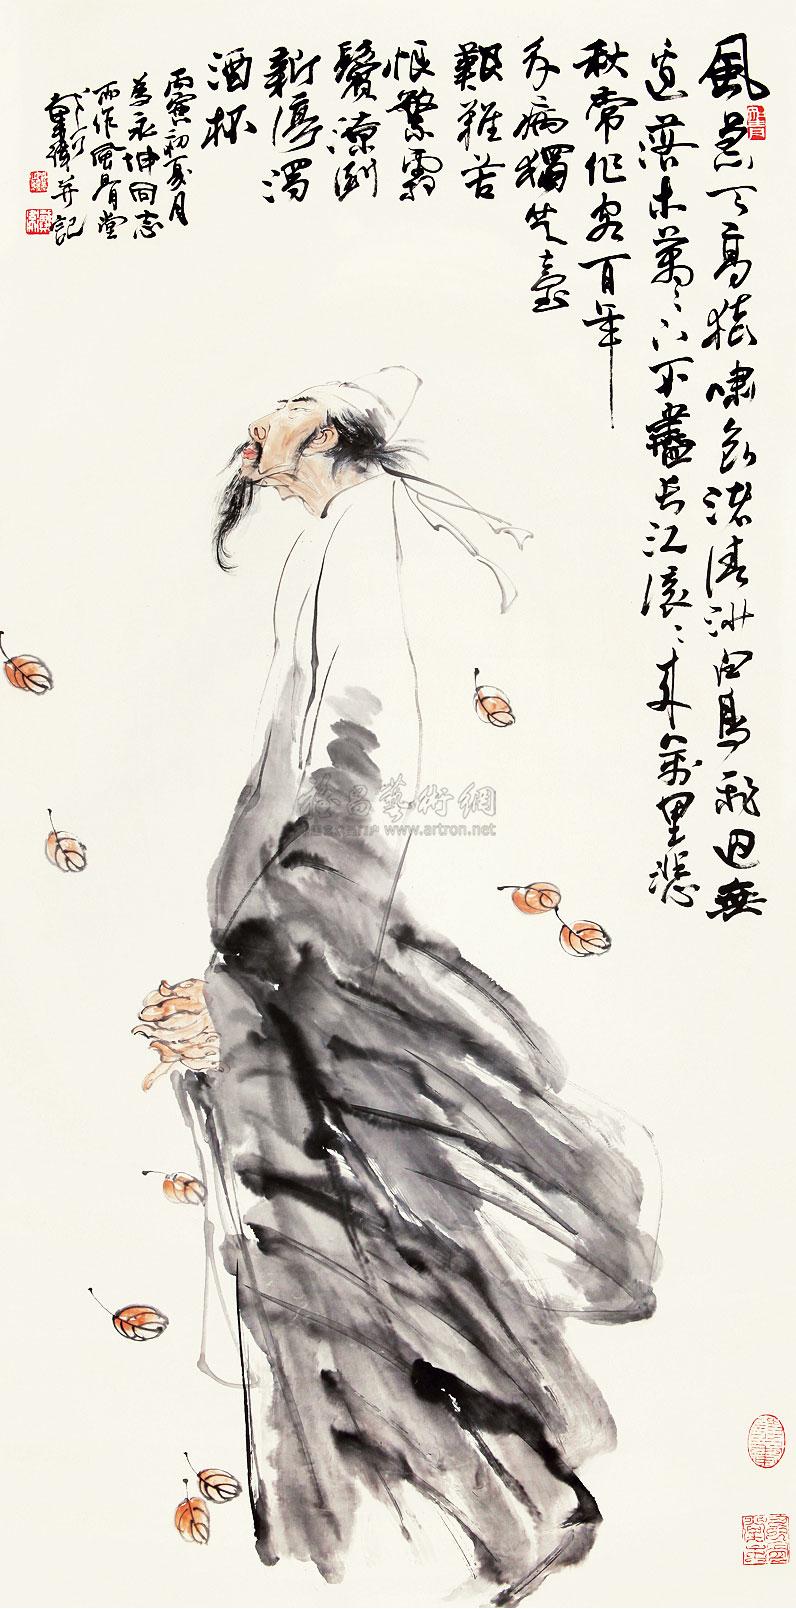 風急天高猿嘯哀渚清沙白鳥飛迴無
邊落木蕭〻下不盡長江滾〻來萬里悲
秋常作客百年
多病獨登臺
艱難苦
恨繁霜
鬢潦倒
新停濁
酒杯
丙寅初夏月
為永坤同志
而作風骨堂
戴衛并記
雅昌藝術網
www.artron.net